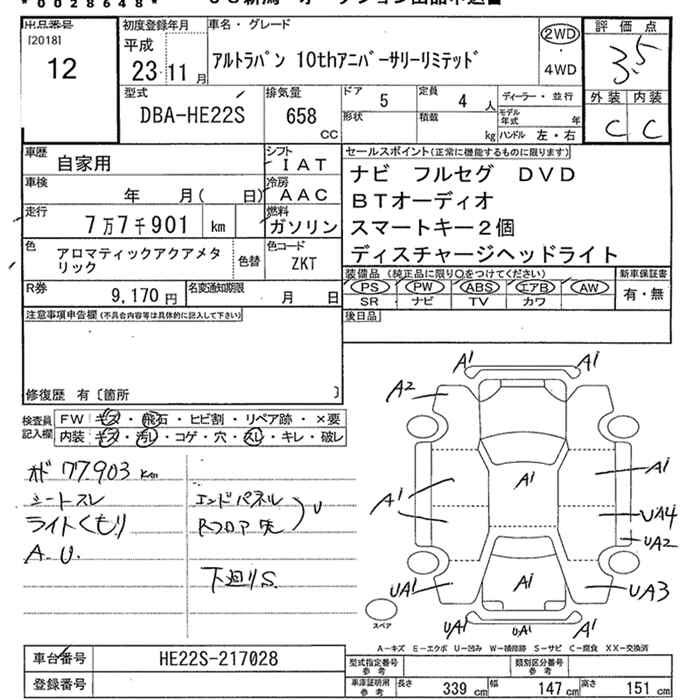 *0028648*
出品番号
[2018]
12
初度登録年月
平成
23 11 月
車名・グレード
アルトラパン 10thアニバーサリーリミテッド
2WD
・
4WD
評価点
3.5
外装 内装
C C
型式
DBA-HE22S
排気量
658
CC
ドア
5
定員
4 人
ディーラー・並行
形状
積載
kg
モデル年式
年
ハンドル 左・右
車歴
自家用
シフト
IAT
車検
年 月( 日)
冷房
AAC
走行
7万7千901 km
燃料
ガソリン
色
アロマティックアクアメタ
リック
色替
色コード
ZKT
R券
9,170 円
名変通知期限
月 日
セールスポイント(正常に機能するものに限ります)
ナビ フルセグ DVD
BTオーディオ
スマートキー2個
ディスチャージヘッドライト
装備品(純正品に限り○をつけてください)
新車保証書
PS PW ABS エアB AW
SR ナビ TV カワ
有・無
後日品
注意事項申告欄(不具合内容等は具体的に記入して下さい)
修復歴 有〔箇所 〕
検査員
記入欄
FW キズ・飛石・ヒビ割・リペア跡・×要
内装 キズ・汚れ・コゲ・穴・スレ・キレ・破レ
オド 77.903 km
シートスレ
ライトくもり
A.U.
エンドパネル
Rフロア先
U
下廻りS.
A1 A1
A2
A1
A1
A1
UA4
UA2
UA1
A1
UA3
UA1
UA1
A1
スペア
A-キズ E-エクボ U-凹み W-補修跡 S-サビ C-腐食 XX-交換済
車台番号
HE22S-217028
登録番号
型式指定番号
参考
類別区分番号
参考
車庫証明用
参考
長さ 339 cm 幅 147 cm 高さ 151 cm